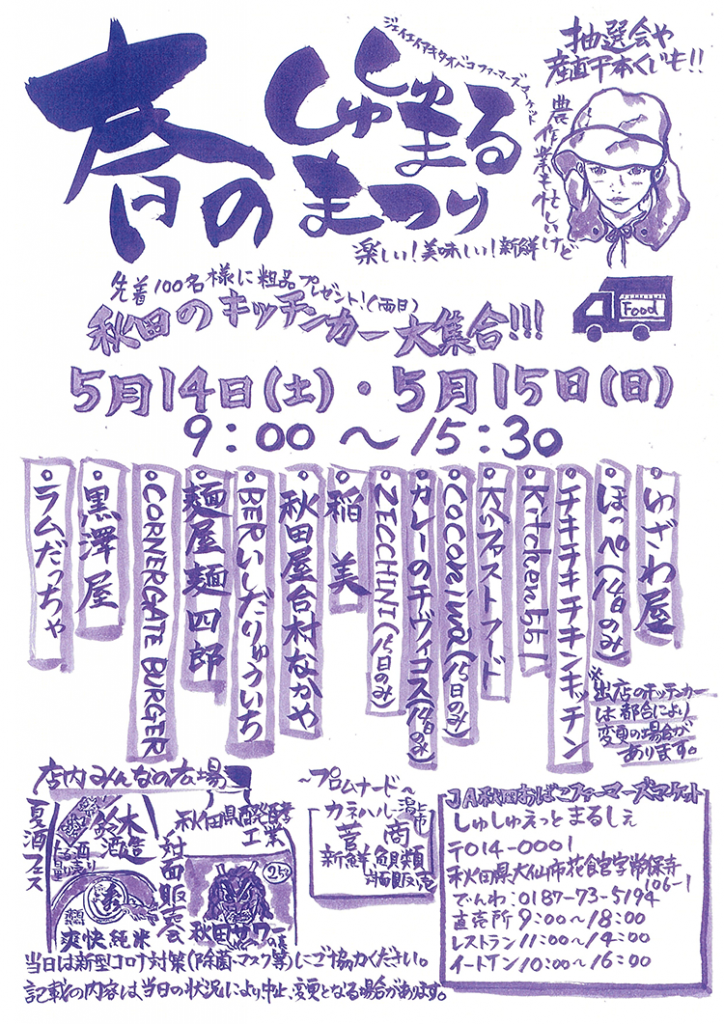 春のしゅしゅまるまつり
ジェイエイアキタオバコファーマーズマーケット
抽選会や
産直千本くじも!!
農作業も忙しいけど
楽しい!美味しい!新鮮
先着100名様に粗品プレゼント!(両日)
秋田のキッチンカー大集合!!!
Food
5月14日(土)・5月15日(日)
9:00～15:30
ゆざわ屋
ほっぺ(14日のみ)
チキチキチキンキッチン
Kitchen551
K'sファストフード
Coconiwa(15日のみ)
カレーのチヴィコス(14日のみ)
ZECCHINI(15日のみ)
稲美
秋田屋台村なかや
BERいしだりゅういち
麺屋麺四郎
CORNERGATE BURGER
黒澤屋
ラムだっちゃ
※出店のキッチンカー
は都合により
変更の場合が
あります。
店内みんなの広場
夏酒フェス
鈴木
酒造
秋田県醗酵
工業
対面販売会
爽快純米
25%
秋田サワーの素
～プロムナード～
潟上市
カネハル
菅商
新鮮魚類
対面販売
JA秋田おばこファーマーズマーケット
しゅしゅえっとまるしぇ
〒014-0001
秋田県大仙市花館字常保寺
106-1
でんわ:0187-73-5194
直売所 9:00～18:00
レストラン11:00～14:00
イートイン10:00～16:00
当日は新型コロナ対策(除菌・マスク等)にご協力ください。
記載の内容は当日の状況により、中止、変更となる場合があります。